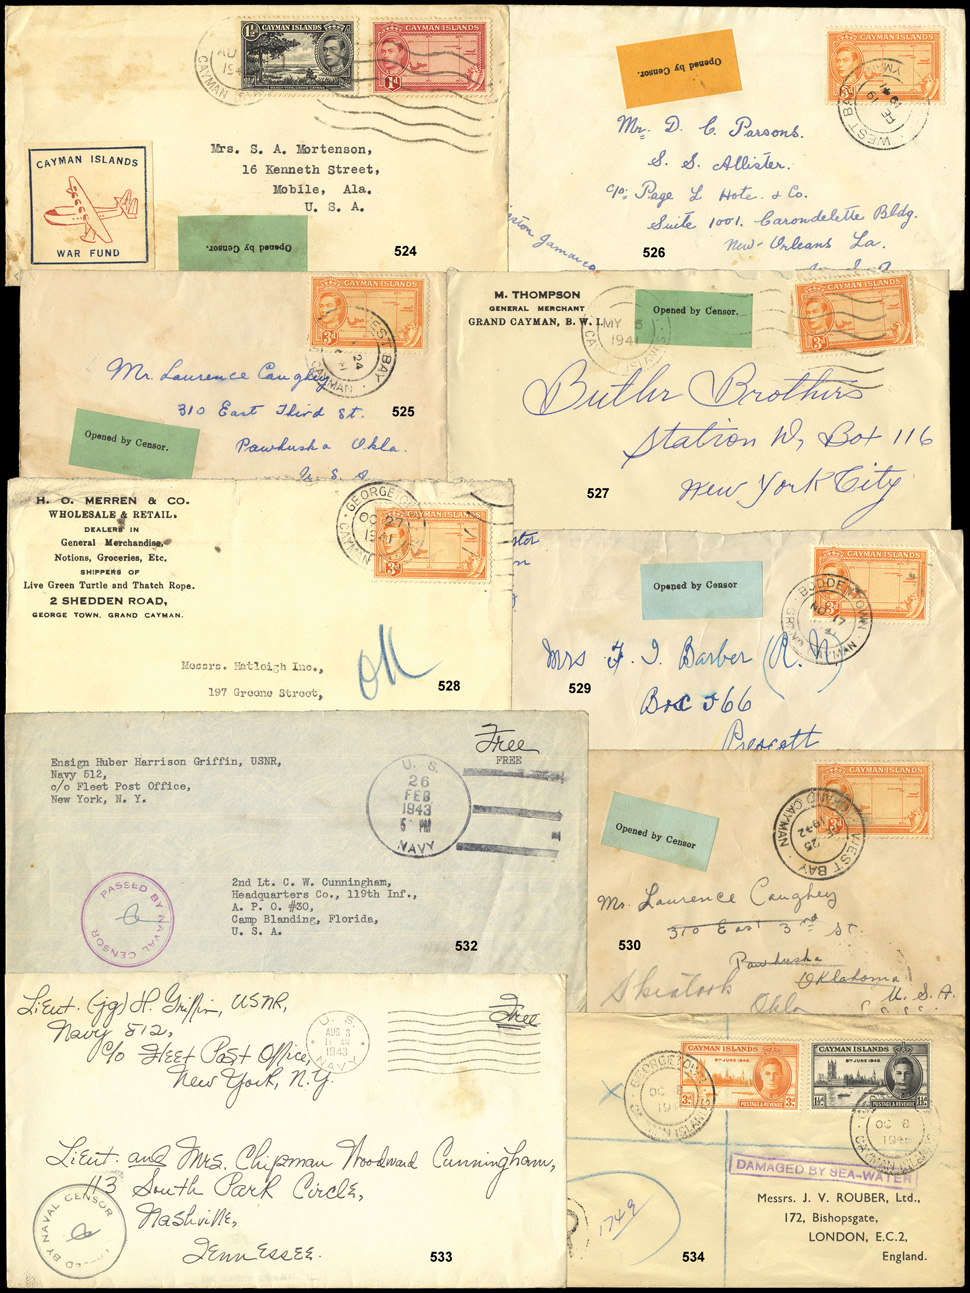 CAYMAN ISLANDS
1½d
CAYMAN ISLANDS
1d
CAYMAN
CAYMAN ISLANDS
WAR FUND
Mrs. S. A. Mortenson,
16 Kenneth Street,
Mobile, Ala.
U. S. A.
Opened by Censor.
524
Opened by Censor.
CAYMAN ISLANDS
3d
WEST BAY
Mr. D. C. Parsons.
S. S. Allister.
c/o: Page L Hote. & Co.
Suite 1001. Carondelette Bldg.
New-Orleans La.
Jamaica
526
CAYMAN ISLANDS
3d
WEST BAY
CAYMAN
Mr. Laurence Caughey
310 East Third St.
Pawhuska Okla.
U. S. A
Opened by Censor.
525
M. THOMPSON
GENERAL MERCHANT
GRAND CAYMAN, B. W. I.
MY 5
1941
Opened by Censor.
CAYMAN ISLANDS
3d
Butler Brothers
Station W, Box 116
New York City
527
H. O. MERREN & CO.
WHOLESALE & RETAIL.
DEALERS IN
General Merchandise,
Notions, Groceries, Etc.
SHIPPERS OF
Live Green Turtle and Thatch Rope.
2 SHEDDEN ROAD,
GEORGE TOWN, GRAND CAYMAN.
GEORGETOWN
OC 27
1941
CAYMAN
CAYMAN ISLANDS
3d
Messrs. Hatleigh Inc.,
197 Greene Street,
528
Opened by Censor
CAYMAN ISLANDS
3d
BODDENTOWN
NO 17
CAYMAN
Mrs F. I. Barber (R.N)
Box 566
Prescott
529
Ensign Huber Harrison Griffin, USNR,
Navy 512,
c/o Fleet Post Office,
New York, N. Y.
Free
FREE
U. S.
26
FEB
1943
5 PM
NAVY
PASSED BY NAVAL CENSOR
2nd Lt. C. W. Cunningham,
Headquarters Co., 119th Inf.,
A. P. O. #30,
Camp Blanding, Florida,
U. S. A.
532
Opened by Censor
CAYMAN ISLANDS
3d
GRAND CAYMAN
25
1942
WEST BAY
Mr. Laurence Caughey
310 East 3rd St.
Pawhuska
Skiatook Oklahoma
Okla U. S. A.
530
Lieut. (jg) H. Griffin, USNR,
Navy 512,
c/o Fleet Post Office,
New York, N.Y.
Free
U. S.
AUG 3
11 AM
1943
NAVY
Lieut. and Mrs. Chipman Woodward Cunningham,
113 South Park Circle,
Nashville,
Tennessee.
PASSED BY NAVAL CENSOR
533
CAYMAN ISLANDS
8TH JUNE 1946
3d
POSTAGE & REVENUE
CAYMAN ISLANDS
8TH JUNE 1946
1½d
POSTAGE & REVENUE
GEORGETOWN
OC 8
CAYMAN ISLANDS
OC 8
1946
DAMAGED BY SEA-WATER
1749
Messrs. J. V. ROUBER, Ltd.,
172, Bishopsgate,
LONDON, E.C.2,
England.
534